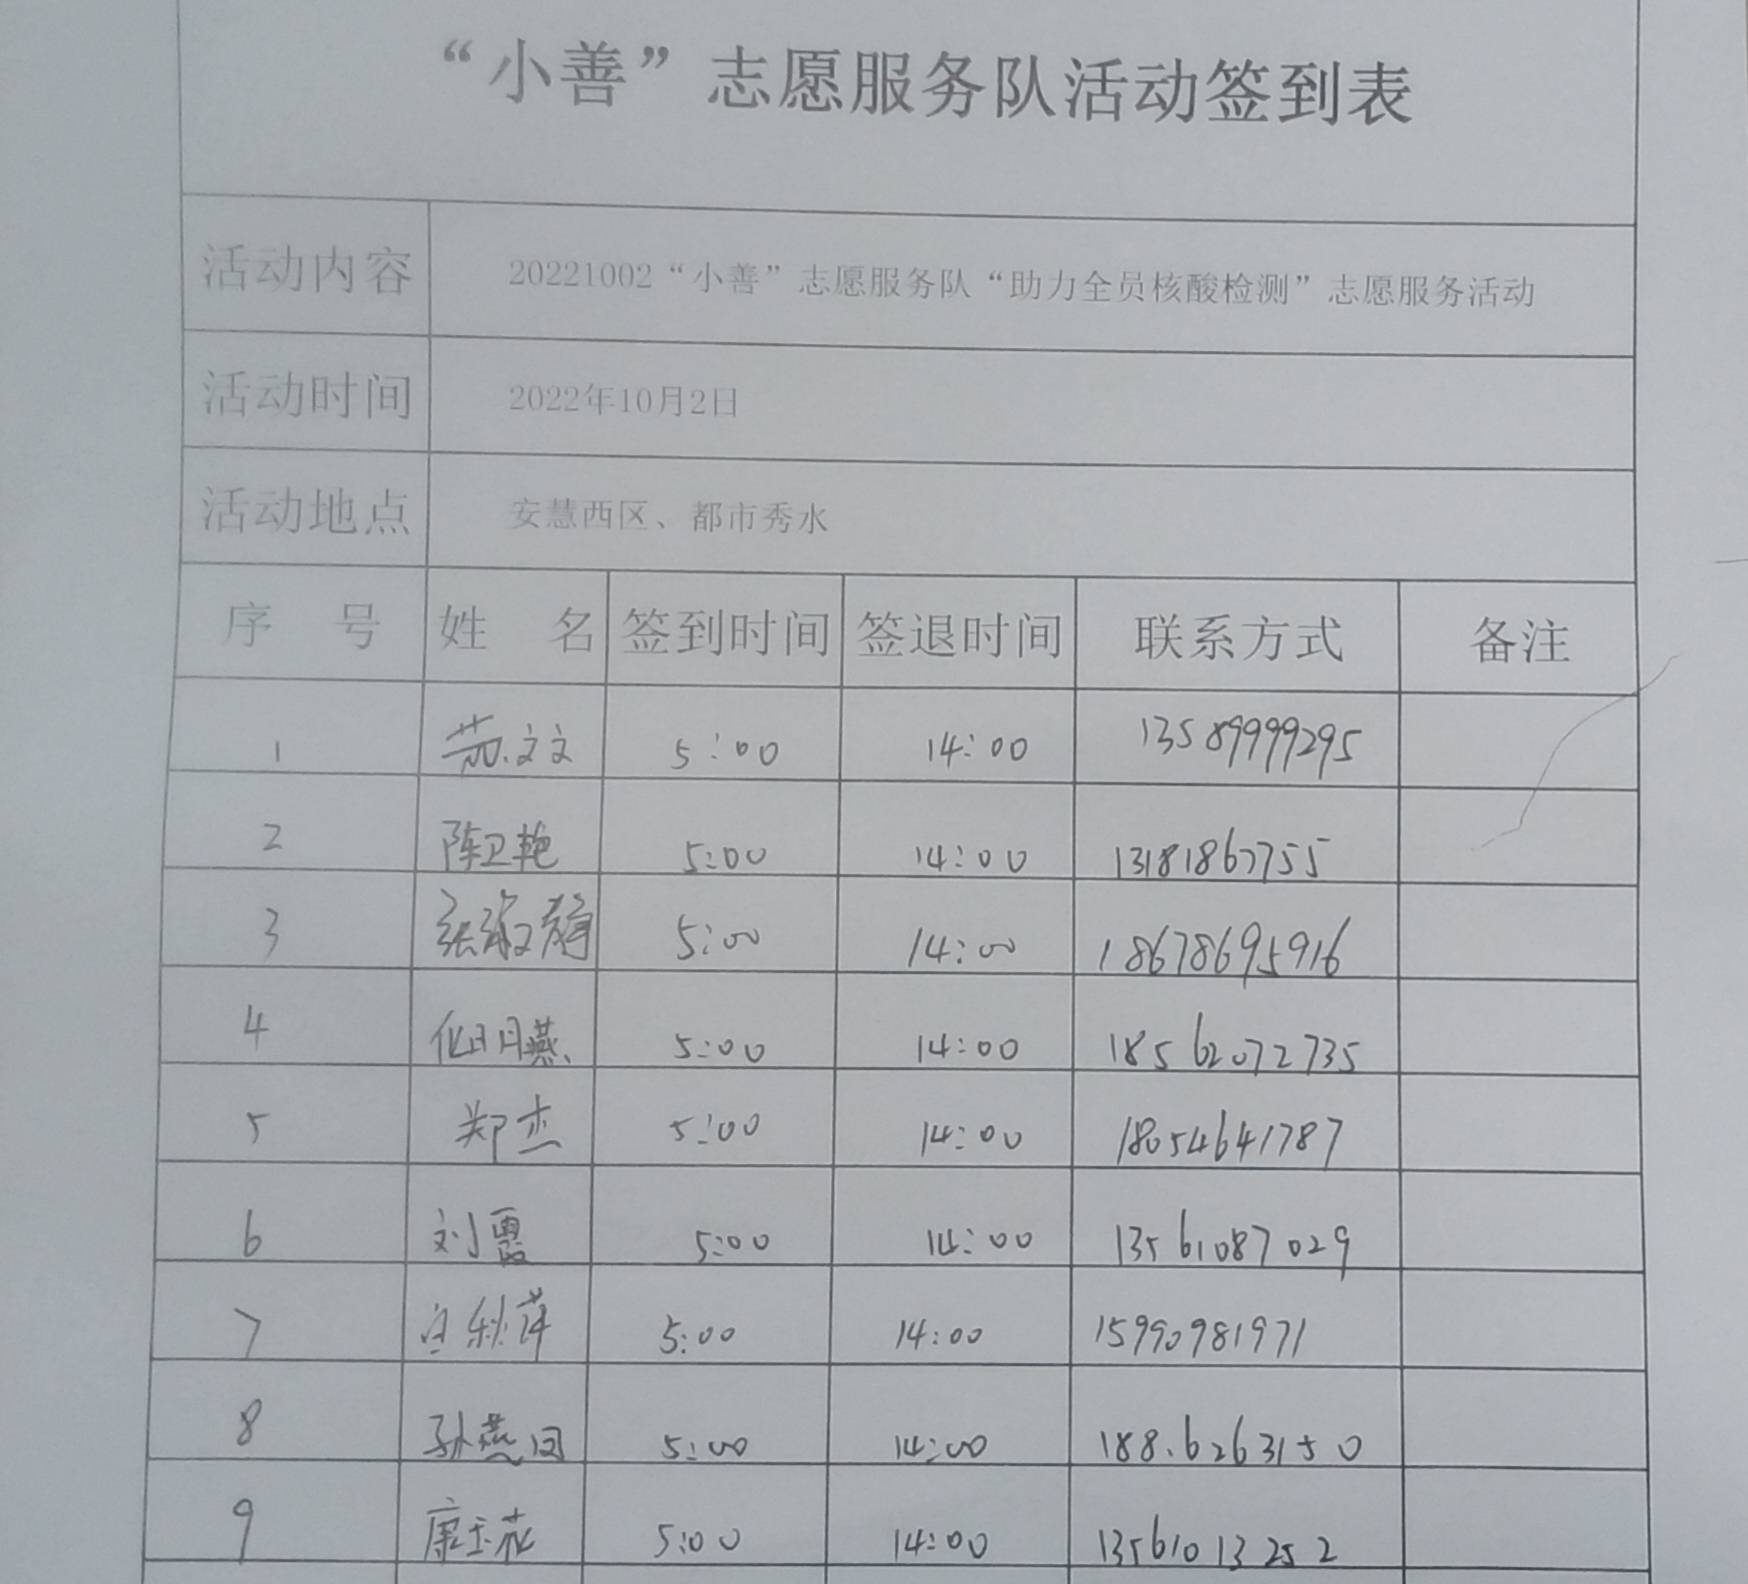 “小善”志愿服务队活动签到表
活动内容 20221002“小善”志愿服务队“助力全员核酸检测”志愿服务活动
活动时间 2022年10月2日
活动地点 安慧西区、都市秀水
序 号 姓 名 签到时间 签退时间 联系方式 备注
1 文文 5:00 14:00 13589999295
2 陈卫艳 5:00 14:00 13181867755
3 张淑静 5:00 14:00 18678695916
4 明燕 5:00 14:00 18562072735
5 郑杰 5:00 14:00 18054641787
6 刘霞 5:00 14:00 13561087029
7 秋萍 5:00 14:00 15990981971
8 孙燕 5:00 14:00 188.6263150
9 康玉花 5:00 14:00 13561013252